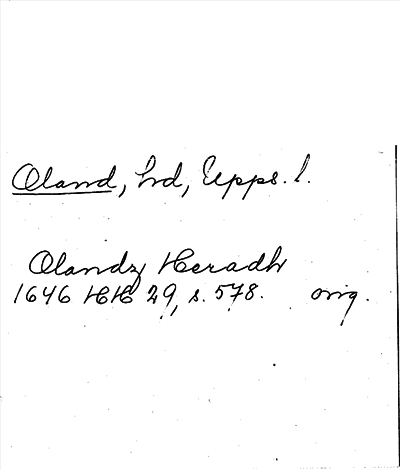 Oland, hd, Upps. l.
Olandz Heradh
1646 HH 29, s. 578. orig.